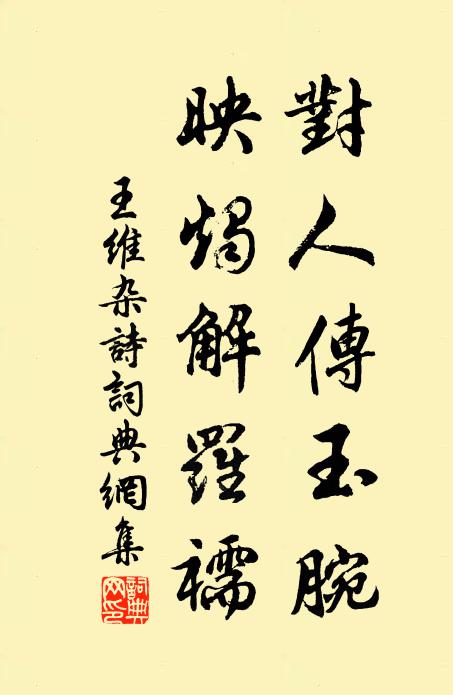 對人傳玉腕
映燭解羅襦
王維杂詩詞典網集
詞典网印